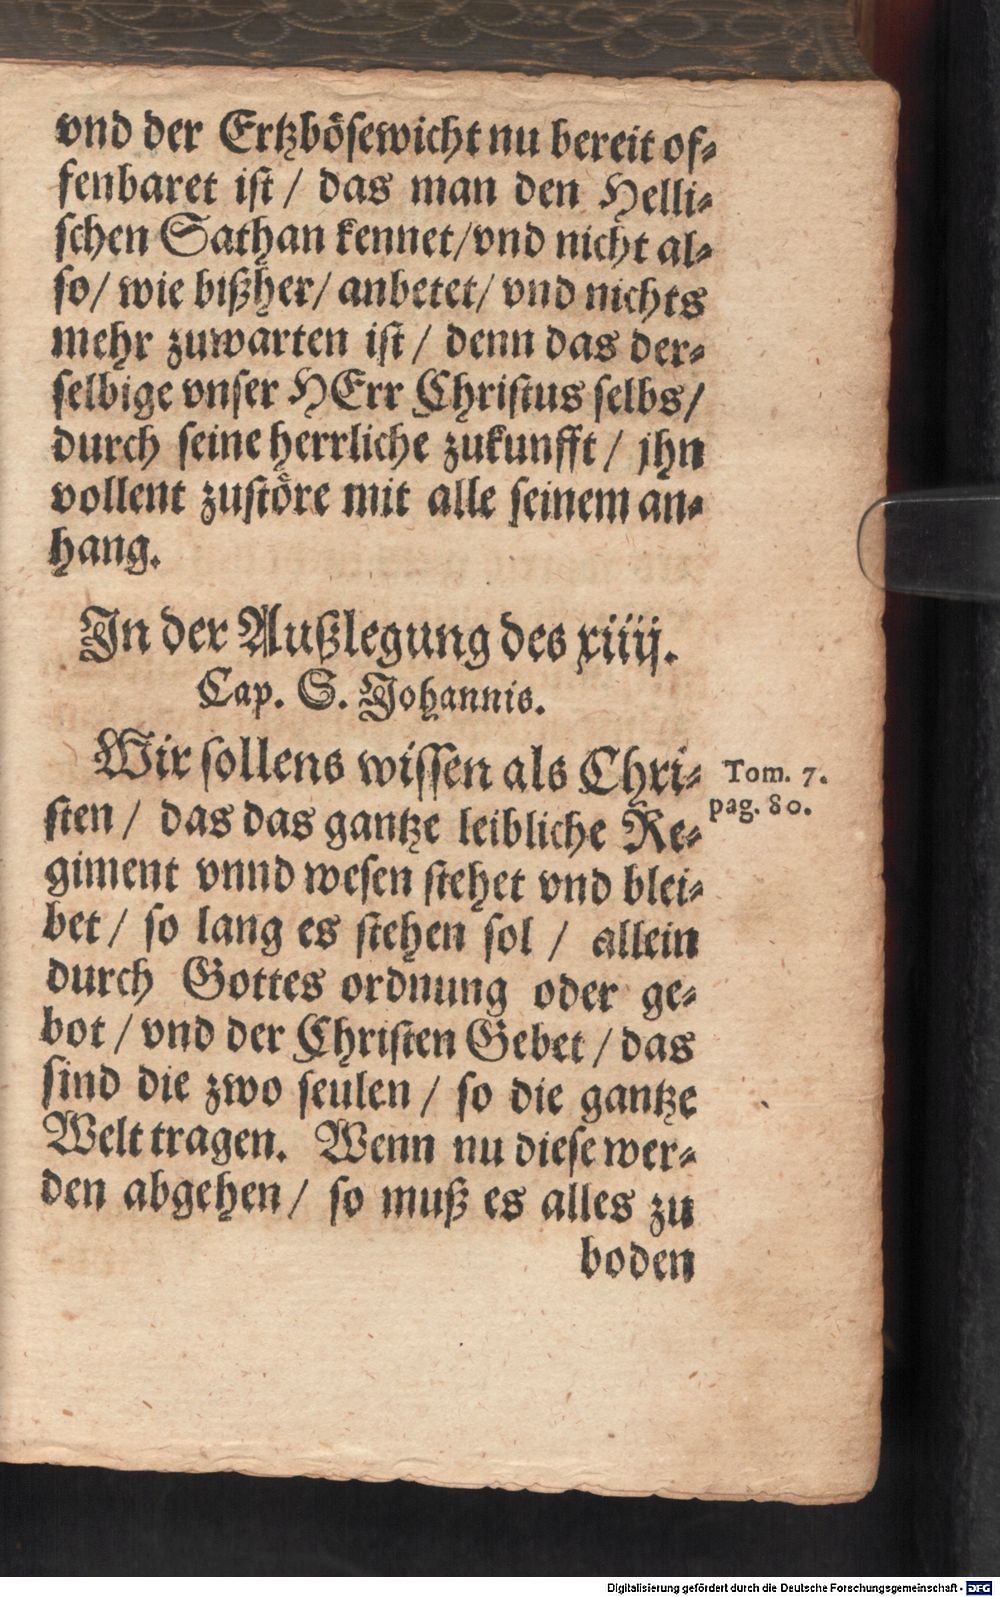 vnd der Ertzbösewicht nu bereit of-
fenbaret ist / das man den Helli-
schen Sathan kennet/vnd nicht al-
so/ wie bißher/ anbetet/ vnd nichts
mehr zuwarten ist / denn das der-
selbige vnser HErr Christus selbs/
durch seine herrliche zukunfft / jhn
vollent zustöre mit alle seinem an-
hang.
In der Außlegung des xiiij.
Cap. S. Johannis.
Wir sollens wissen als Chri-
Tom. 7.
pag. 80.
sten / das das gantze leibliche Re-
giment vnnd wesen stehet vnd blei-
bet / so lang es stehen sol / allein
durch Gottes ordnung oder ge-
bot / vnd der Christen Gebet / das
sind die zwo seulen / so die gantze
Welt tragen. Wenn nu diese wer-
den abgehen / so muß es alles zu
boden
Digitalisierung gefördert durch die Deutsche Forschungsgemeinschaft - DFG